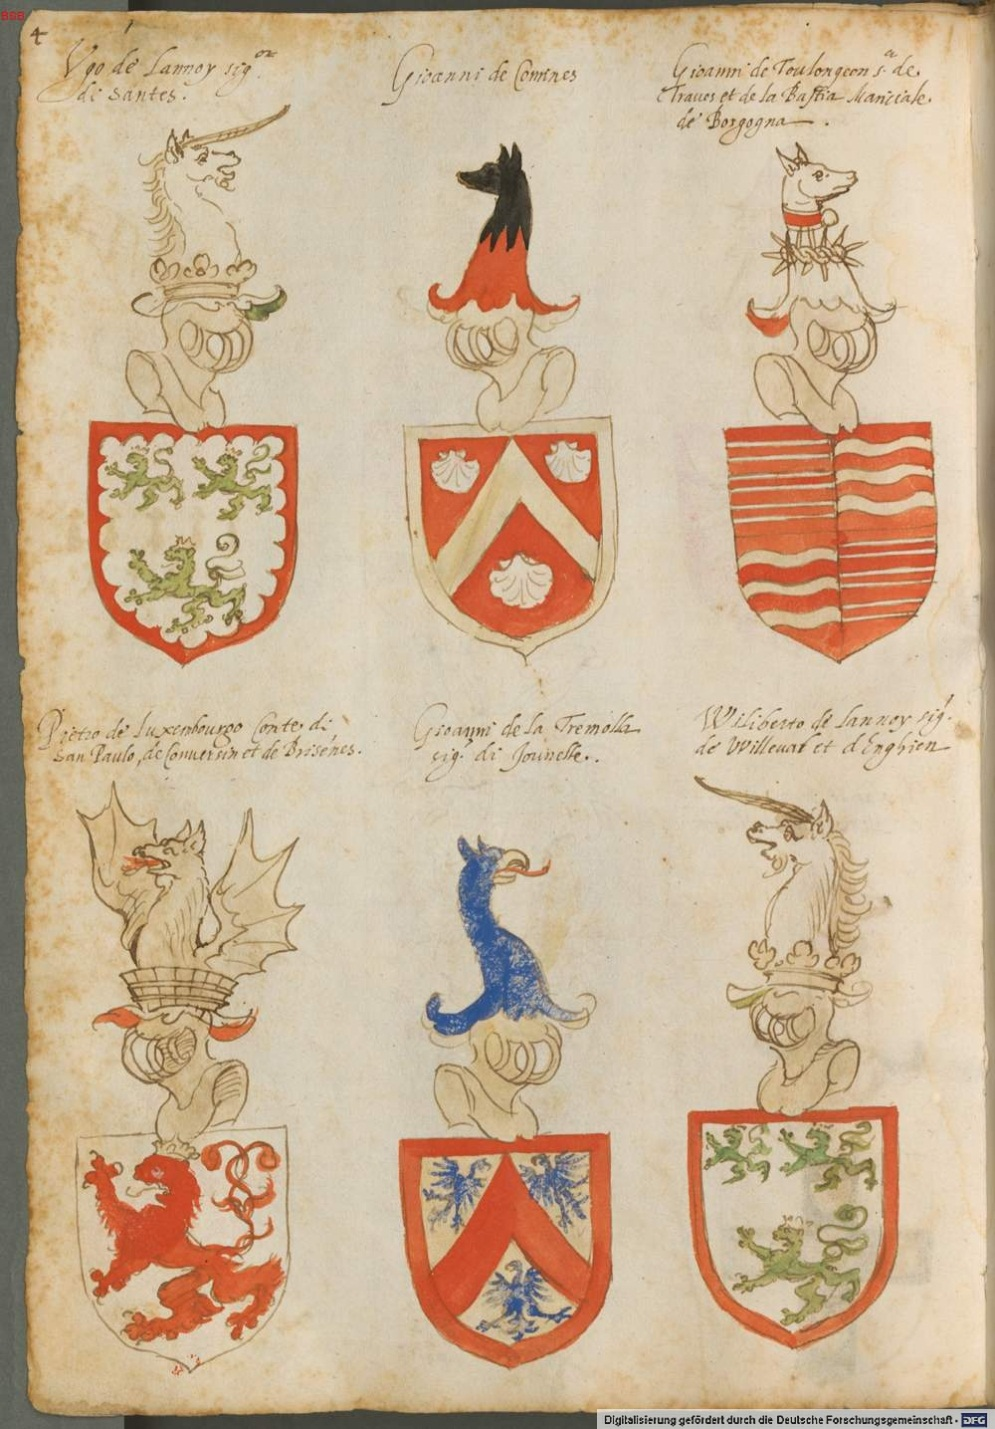 BSB
4
Ugo de Lannoy sig.or
di Santes.
Gioanni de Comines
Gioanni de Toulongeon s.a de
Traues et de la Bastia Mariciale
de Borgogna .
Pietro de Luxenbourgo Conte di
San Paulo, de Conuersin et de
Gioanni de la Tremolla
sig.r di Jounelle.
Wiliberto de Lannoy sig.r
de Willeual et d'Enghien
Digitalisierung gefördert durch die Deutsche Forschungsgemeinschaft - DFG